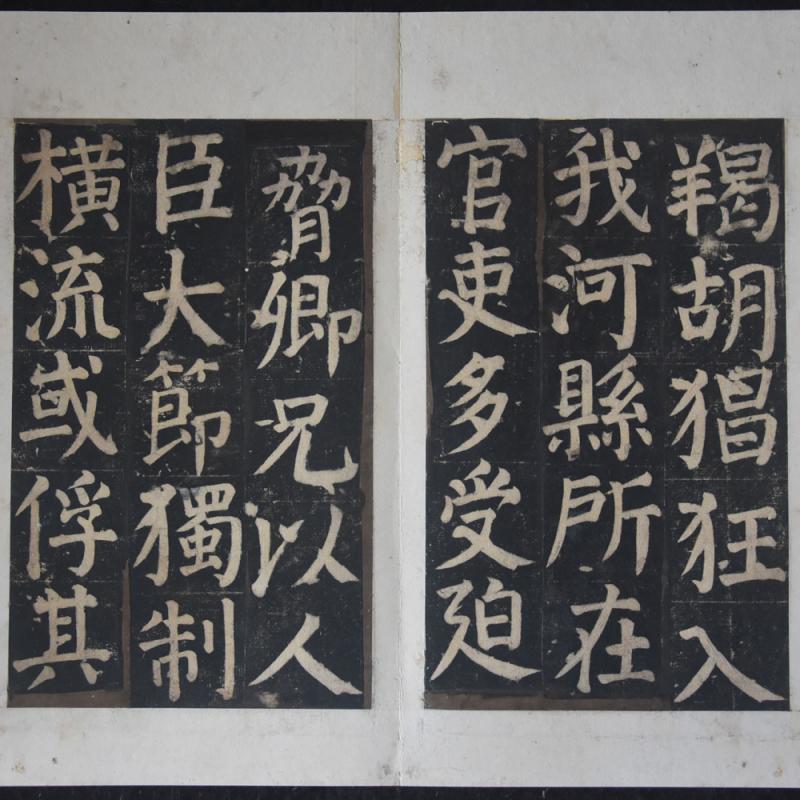 羯胡猖狂入
我河縣所在
官吏多受迫
脅卿兄以人
臣大節獨制
橫流或俘其